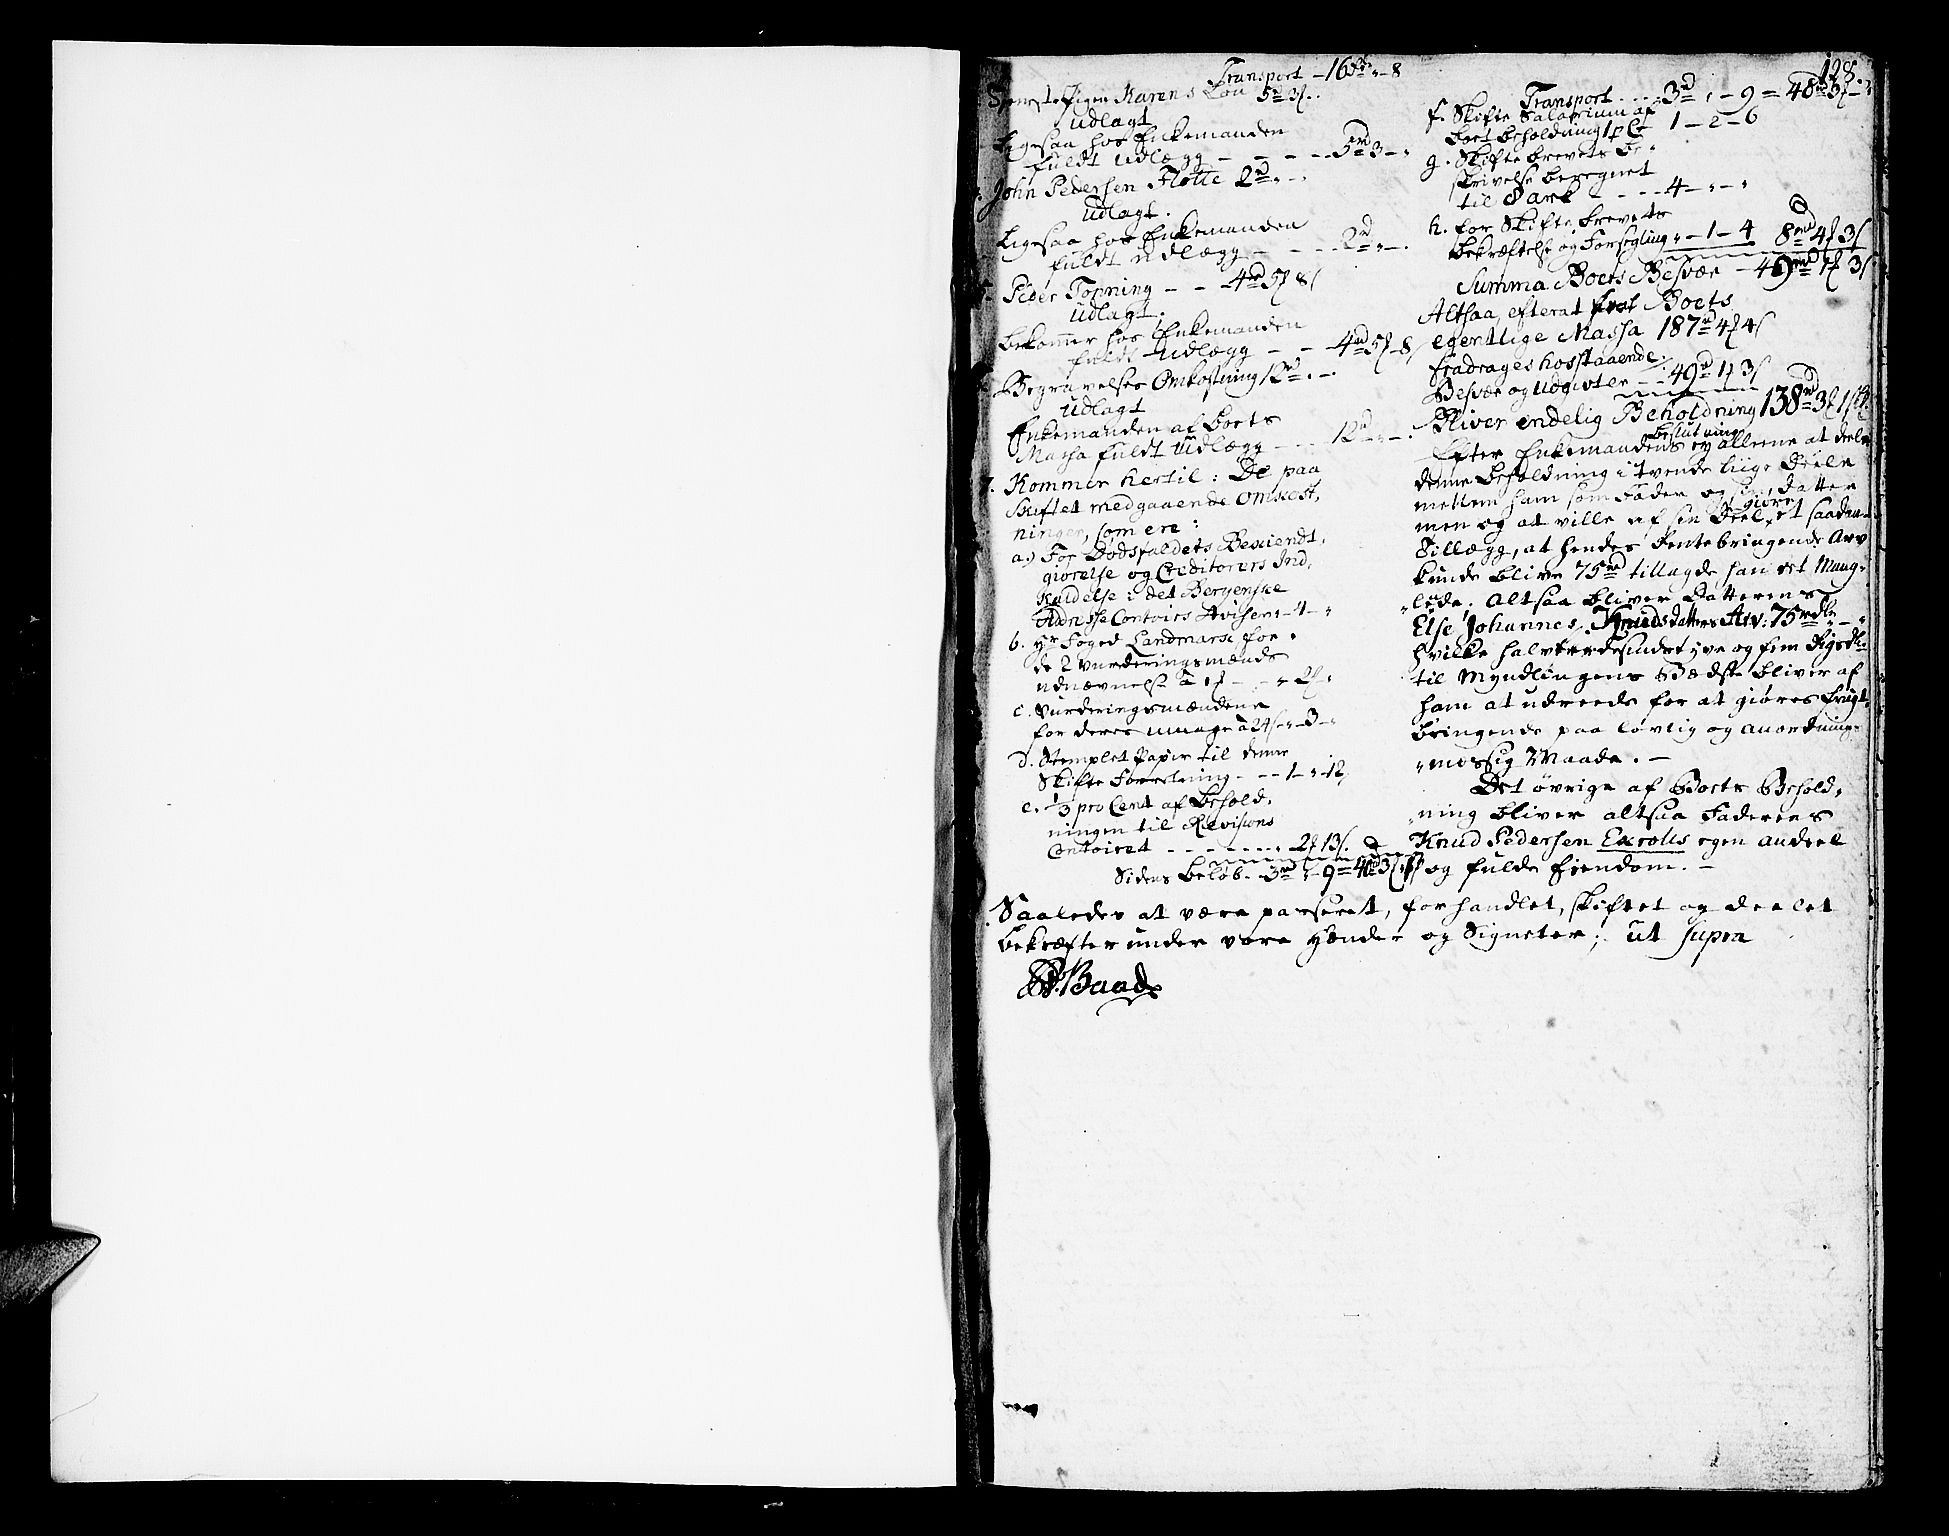 128.
Transport - 16 rd „ - 8
Tjeneste Pigen Karens Løn 5 rd 3 ..
udlagt
Ligesaa hos Enkemanden
fuldt Udlægg - - - - 5 rd 3 - „
John Pedersen Flotte 2 rd „ -
udlagt.
Ligesaa hos Enkemanden
fuldt udlægg - - - - 2 rd „ - .
Peder Topning - - 4 rd 5 8
udlagt.
bekommer hos Enkemanden
fuldt Udlægg - - 4 rd 5 - 8
Begravelses Omkostning 12 rd . - .
udlagt
Enkemanden af Boets
Massa fuldt Udlægg - - - 12 rd „ - .
7. Kommer hertil: De paa
Skiftet medgaaende Omkost,
ninger, som ere:
a.) For Dødsfaldets Bekiendt,
giørelse og Creditorers Ind,
Kaldelse i det Bergenske
Addresse Contoirs Aviser „ - 4 - „
b. Hr Foged Landmark for
de 2 vurderingsmænds
udnævnelse à 1 - „ - 2 „
c. Vurderingsmændene
for deres umage à 24 „ - 3 - „
d. Stemplet Papir til denne
Skifte Forretning - - - 1 - „ - 12
e. 1/3 pro Cent af Behold,
ningen til Revisions
Contoiret - - - - - - „ 2 13
Sidens beløb - 3 rd „ - 9 = 40 rd 3
Transport . . . 3 rd „ - 9 = 48 rd 3 - „
f. Skifte Salarium af
boets beholdning 1 p Ct 1 - 2 - 6
g. Skifte brevets be-
skrivelse beregnet
til 8 ark - - - 4 - „ - „
h. for Skifte brevets
bekræftelse og Forsegling „ - 1 - 4 8 rd 4 3
Summa Boets Besvær - 49 rd 1 3
Altsaa, efterat fra Boets
egentlige Massa 187 rd 4 4
fradrages hosstaaende
Besvær og udgivter - - 49 rd 1 3
Bliver endelig Beholdning 138 rd 3 1
Efter Enkemandens beslutning allerne at deele
denne beholdning i tvende liige Deele
mellem ham som Fader og sin datter
men og at ville af sin Deel giøre et saadan
Tillægg, at hendes Rentebringende Arv
kunde blive 75 rd tillagde han det Mang-
„lede; Altsaa bliver Datterens
Else Johannes Knudsdatters Arv: 75 rdlr „ - „
hvilke halvfierdesindstyve og fem Rigsdlr
til Myndlingens Bedste bliver af
ham at udreede for at giøres frugt-
bringende paa lovlig og anordning-
„mæssig Maade. -
Det øvrige af Boets Behold-
„ning bliver altsaa Faderens
Knud Pedersen Exrolls egen andeel
og fulde Eiendom. -
Saaledes at være passeret, forhandlet, skiftet og deelet
bekræfter under vore Hænder og Signeter; ut supra
Baade